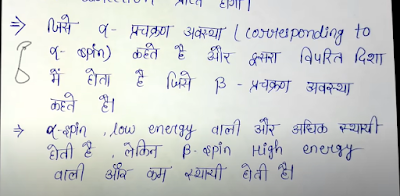 ⇒ जिसे α- प्रचक्रण अवस्था (corresponding to
α- spin) कहते है और दूसरा विपरित दिशा
में होता है जिसे β- प्रचक्रण अवस्था
कहते है।
⇒ α-spin, low energy वाली और अधिक स्थायी
होती है, लेकिन β-spin High energy
वाली और कम स्थायी होती है।